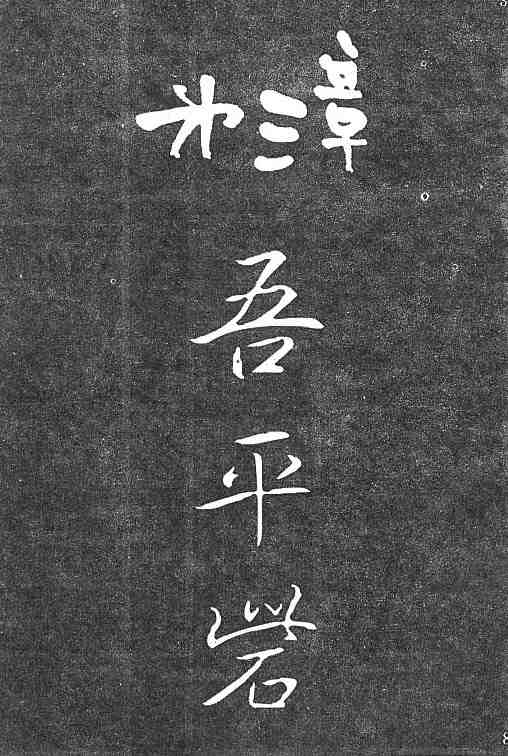 第三章
吾平